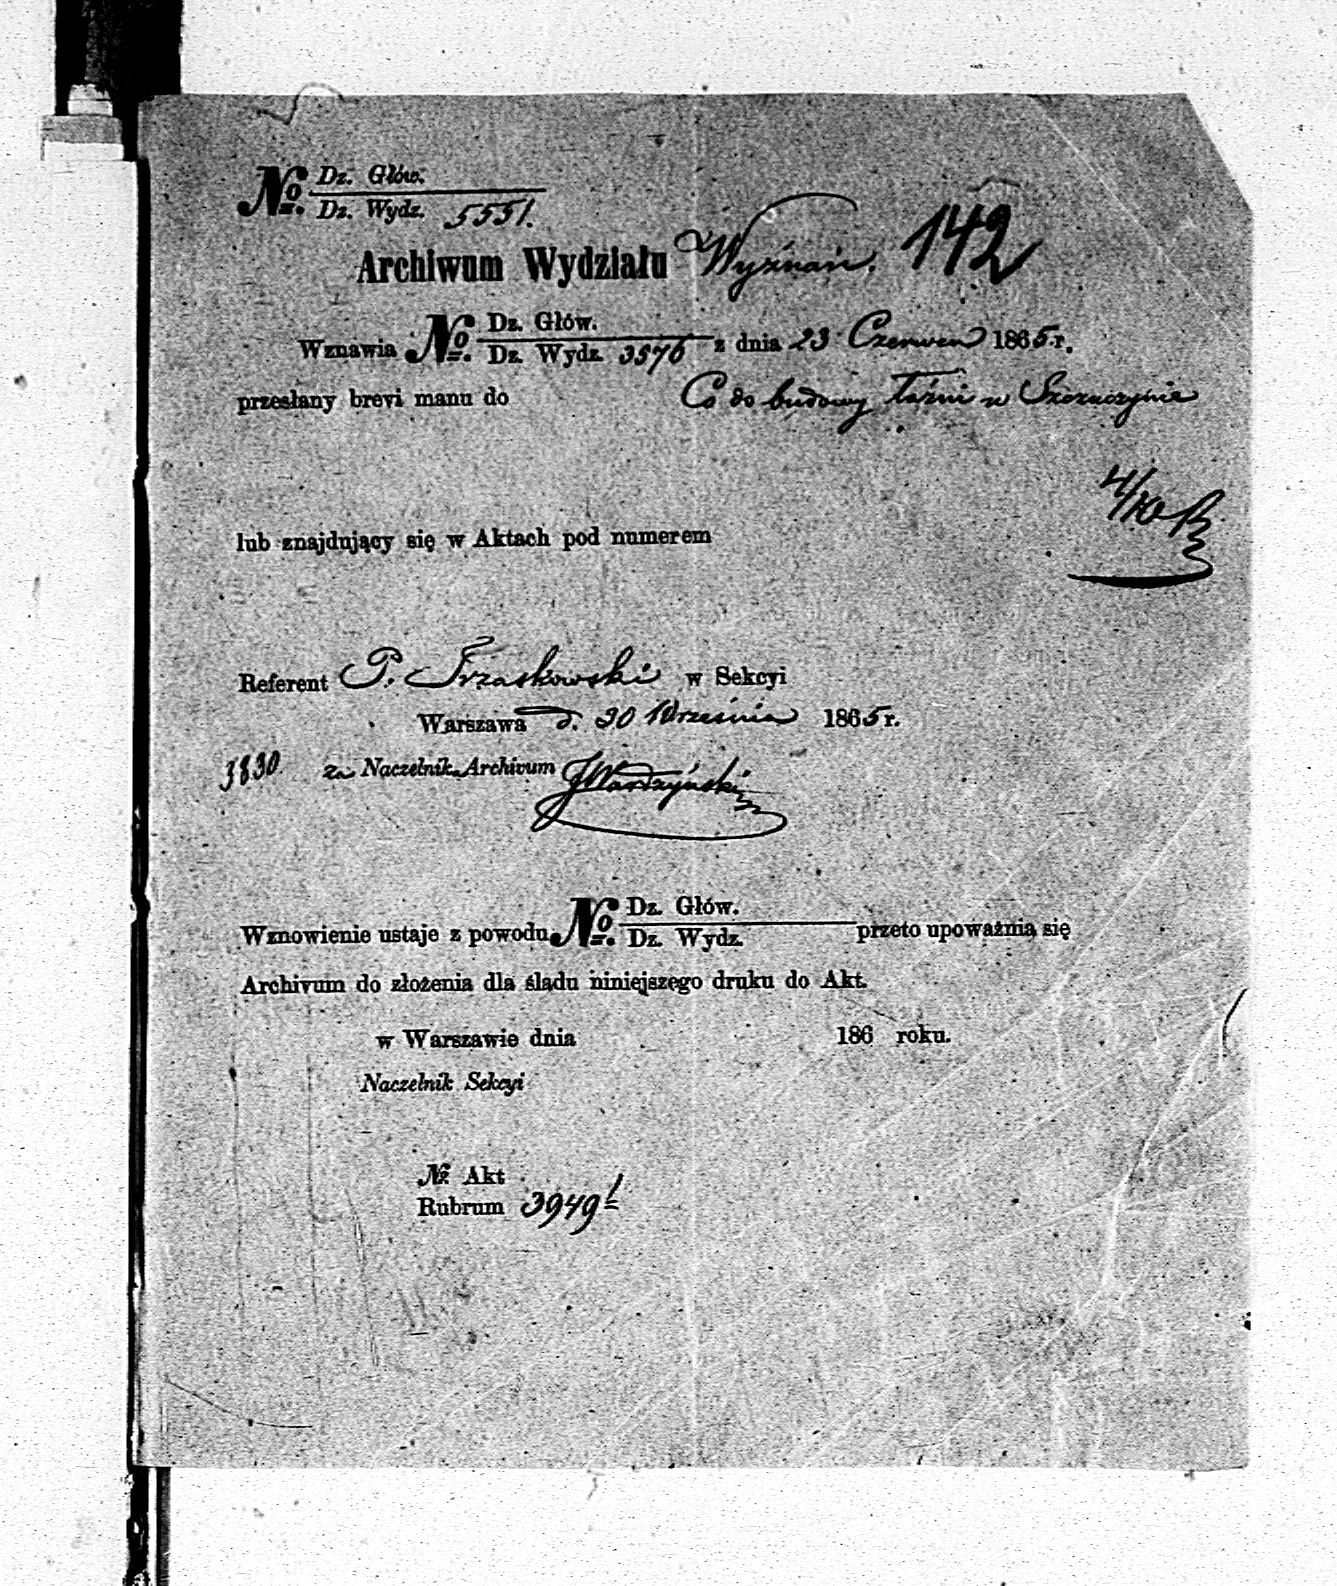 No. Dz. Głów.
Dz. Wydz. 5551.
Archiwum Wydziału Wyznań. 142
Wznawia No. Dz. Głów.
Dz. Wydz. 3576 z dnia 23 Czerwca 1865 r.
przesłany brevi manu do Co do budowy łaźni w Szczuczynie
4/10
lub znajdujący się w Aktach pod numerem
Referent P. Trzaskowski w Sekcyi
Warszawa d. 30 Września 1865 r.
3830. za Naczelnik Archivum
Wznowienie ustaje z powodu No. Dz. Głów.
Dz. Wydz. przeto upoważnia się
Archivum do złożenia dla śladu niniejszego druku do Akt.
w Warszawie dnia 186 roku.
Naczelnik Sekcyi
No. Akt
Rubrum 3949